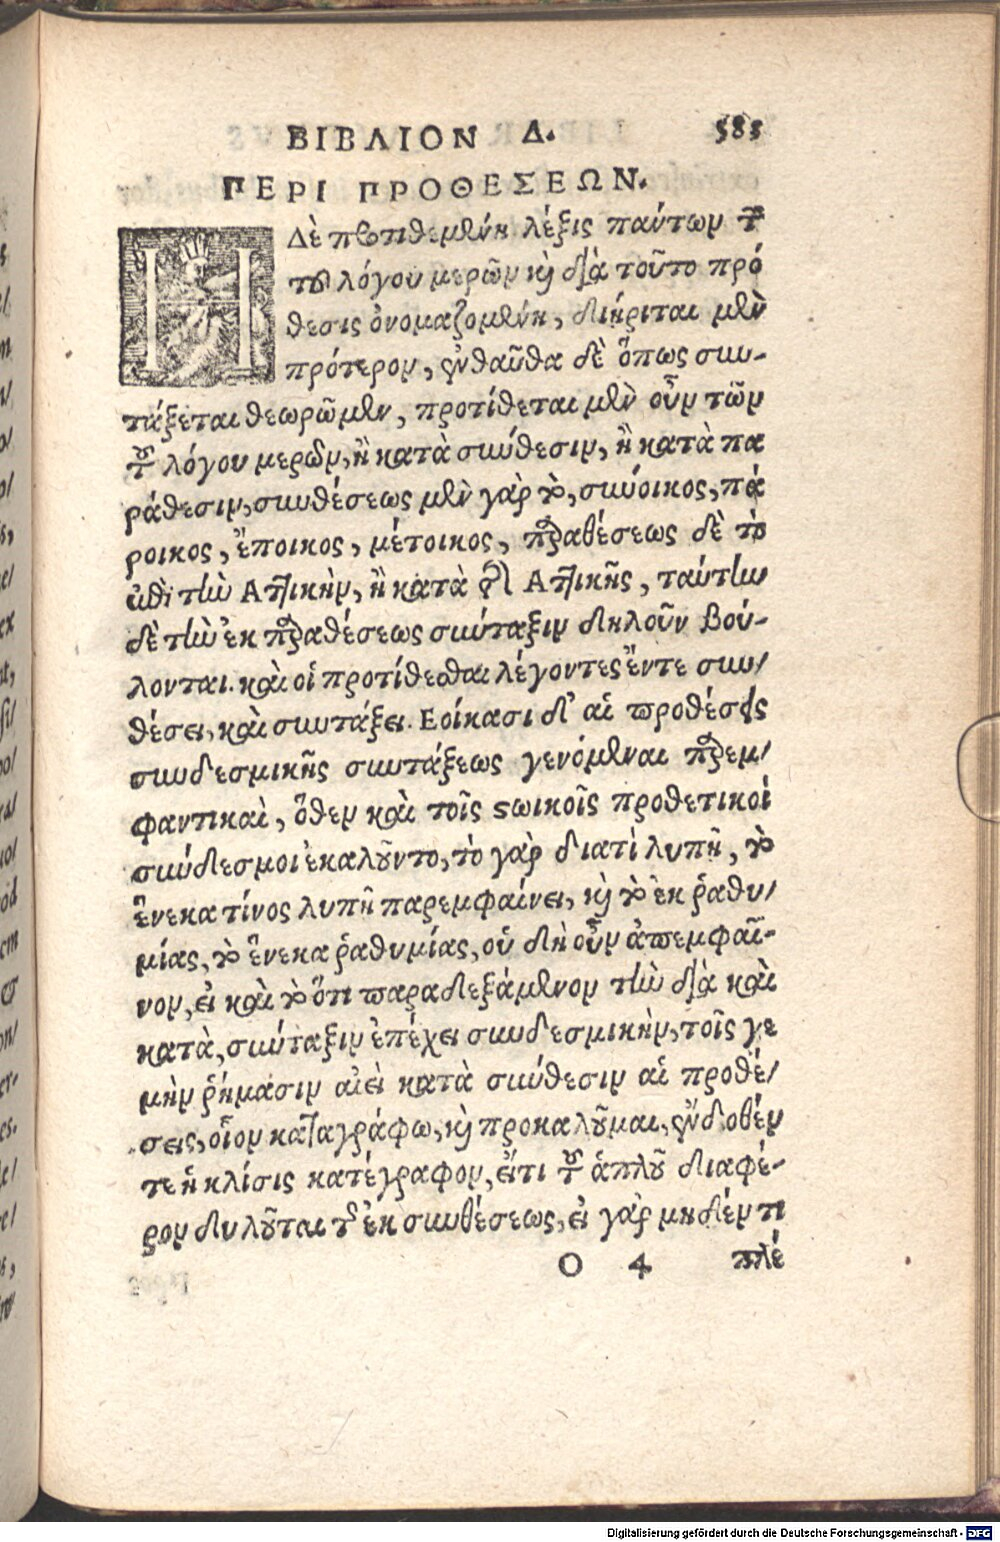 ΒΙΒΛΙΟΝ Δ. 585
ΠΕΡΙ ΠΡΟΘΕΣΕΩΝ.
Η Δὲ προτιθεμένη λέξις παύτων τ
τοῦ λόγου μερῶν καὶ διὰ τοῦτο πρό
θεσις ὀνομαζομένη, διῄριται μὲν
πρότερον, ἐνθαῦθα δὲ ὅπως συν-
τάξεται θεωρῶμεν, προτίθεται μὲν οὖν τῶν
τοῦ λόγου μερῶν, ἢ κατὰ σύνθεσιν, ἢ κατὰ πα
ράθεσιν, συνθέσεως μὲν γὰρ τὸ, σύνοικος, πά
ροικος, ἔποικος, μέτοικος, παραθέσεως δὲ τὸ
ἐπὶ τὴν Ἀττικὴν, ἢ κατὰ τῆς Ἀττικῆς, ταύτην
δὲ τὴν ἐκ παραθέσεως σύνταξιν δηλοῦν βού-
λονται. καὶ οἱ προτίθεσθαι λέγοντες ἔντε συν/
θέσει, καὶ συντάξει. Εοίκασι δ' αἱ προθέσεις
συνδεσμικῆς συντάξεως γενόμεναι παρεμ/
φαντικαὶ, ὅθεν καὶ τοῖς στωικοῖς προθετικοί
σύνδεσμοι ἐκαλοῦντο, τὸ γὰρ διατί λυπῇ, τὸ
ἕνεκα τίνος λυπῇ παρεμφαίνει, καὶ τὸ ἐκ ῥαθυ/
μίας, τὸ ἕνεκα ῥαθυμίας, οὐ δὴ οὖν ἀπεμφαῖ-
νον, εἰ καὶ τὸ ὅτι παραδεξάμενον τὴν διὰ καὶ
κατὰ, σύνταξιν ἐπέχει συνδεσμικὴν, τοῖς γε
μὴν ῥήμασιν αἰεὶ κατὰ σύνθεσιν αἱ προθέ/
σεις, οἷον καταγράφω, καὶ προκαλοῦμαι, ἔνδοθέν
τε ἡ κλίσις κατέγραφον, εἴτι τοῦ ἁπλοῦ διαφέ-
ρον δυλοῦται τοῦ ἐκ συνθέσεως, εἰ γὰρ μηδέν τι
O 4 πλέ
Digitalisierung gefördert durch die Deutsche Forschungsgemeinschaft - DFG